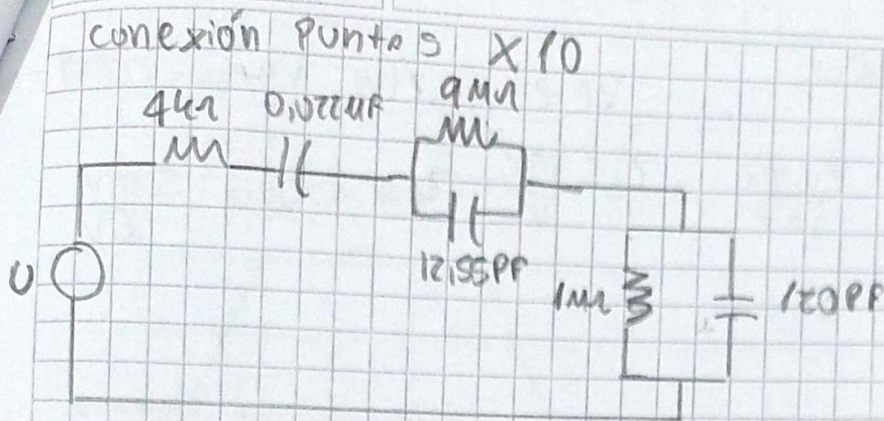 conexión Puntas X10
9MΩ
4kΩ 0,022MF
12,55PF
U
1MΩ
120PF